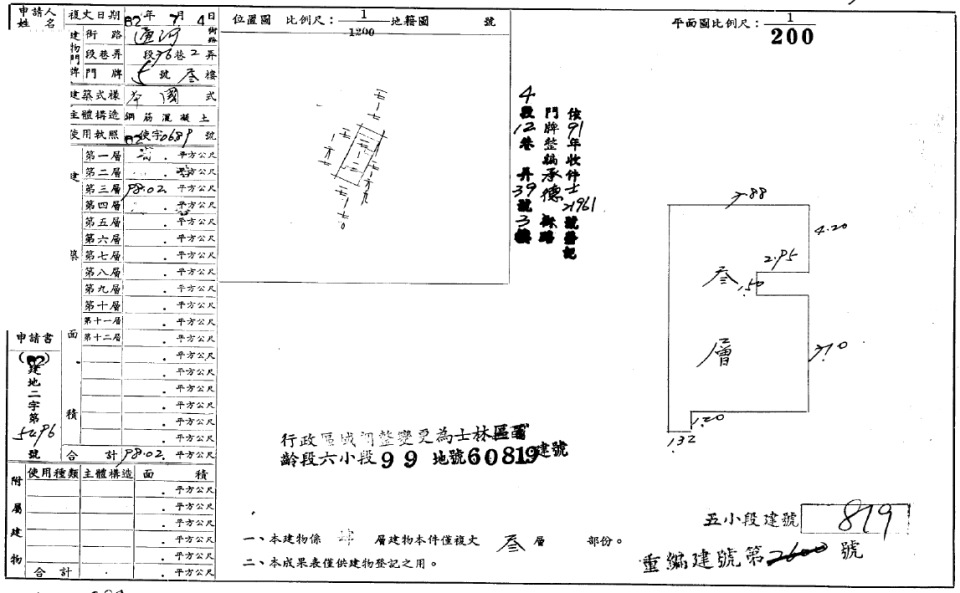 申請人
姓名
複丈日期 82年 7月 4日
建物門牌
街路 通河 街路
段巷弄 段76巷2弄
門牌 5號叁樓
建築式樣 本國 式
主體構造 鋼筋混凝土
使用執照 82使字0689號
建築面積
第一層 . 平方公尺
第二層 . 平方公尺
第三層 98.02 平方公尺
第四層 . 平方公尺
第五層 . 平方公尺
第六層 . 平方公尺
第七層 . 平方公尺
第八層 . 平方公尺
第九層 . 平方公尺
第十層 . 平方公尺
第十一層 . 平方公尺
第十二層 . 平方公尺
. 平方公尺
. 平方公尺
. 平方公尺
. 平方公尺
. 平方公尺
. 平方公尺
合計 98.02 平方公尺
申請書
(82)建地二字第5496號
附屬建物
使用種類 主體構造 面積
. 平方公尺
. 平方公尺
. 平方公尺
. 平方公尺
. 平方公尺
合計 . 平方公尺
位置圖 比例尺：1/1200 地籍圖 號
依91年收件士21961號登記
門牌整編承德路
4段12巷弄39號3樓
平面圖比例尺：1/200
7.88
4.20
2.95
1.50
7.10
1.20
1.32
叁層
行政區域調整變更為士林區
齡段六小段99地號60819建號
五小段建號 819
重編建號第2600號
一、本建物係 肆 層建物本件僅複丈 叁 層 部份。
二、本成果表僅供建物登記之用。